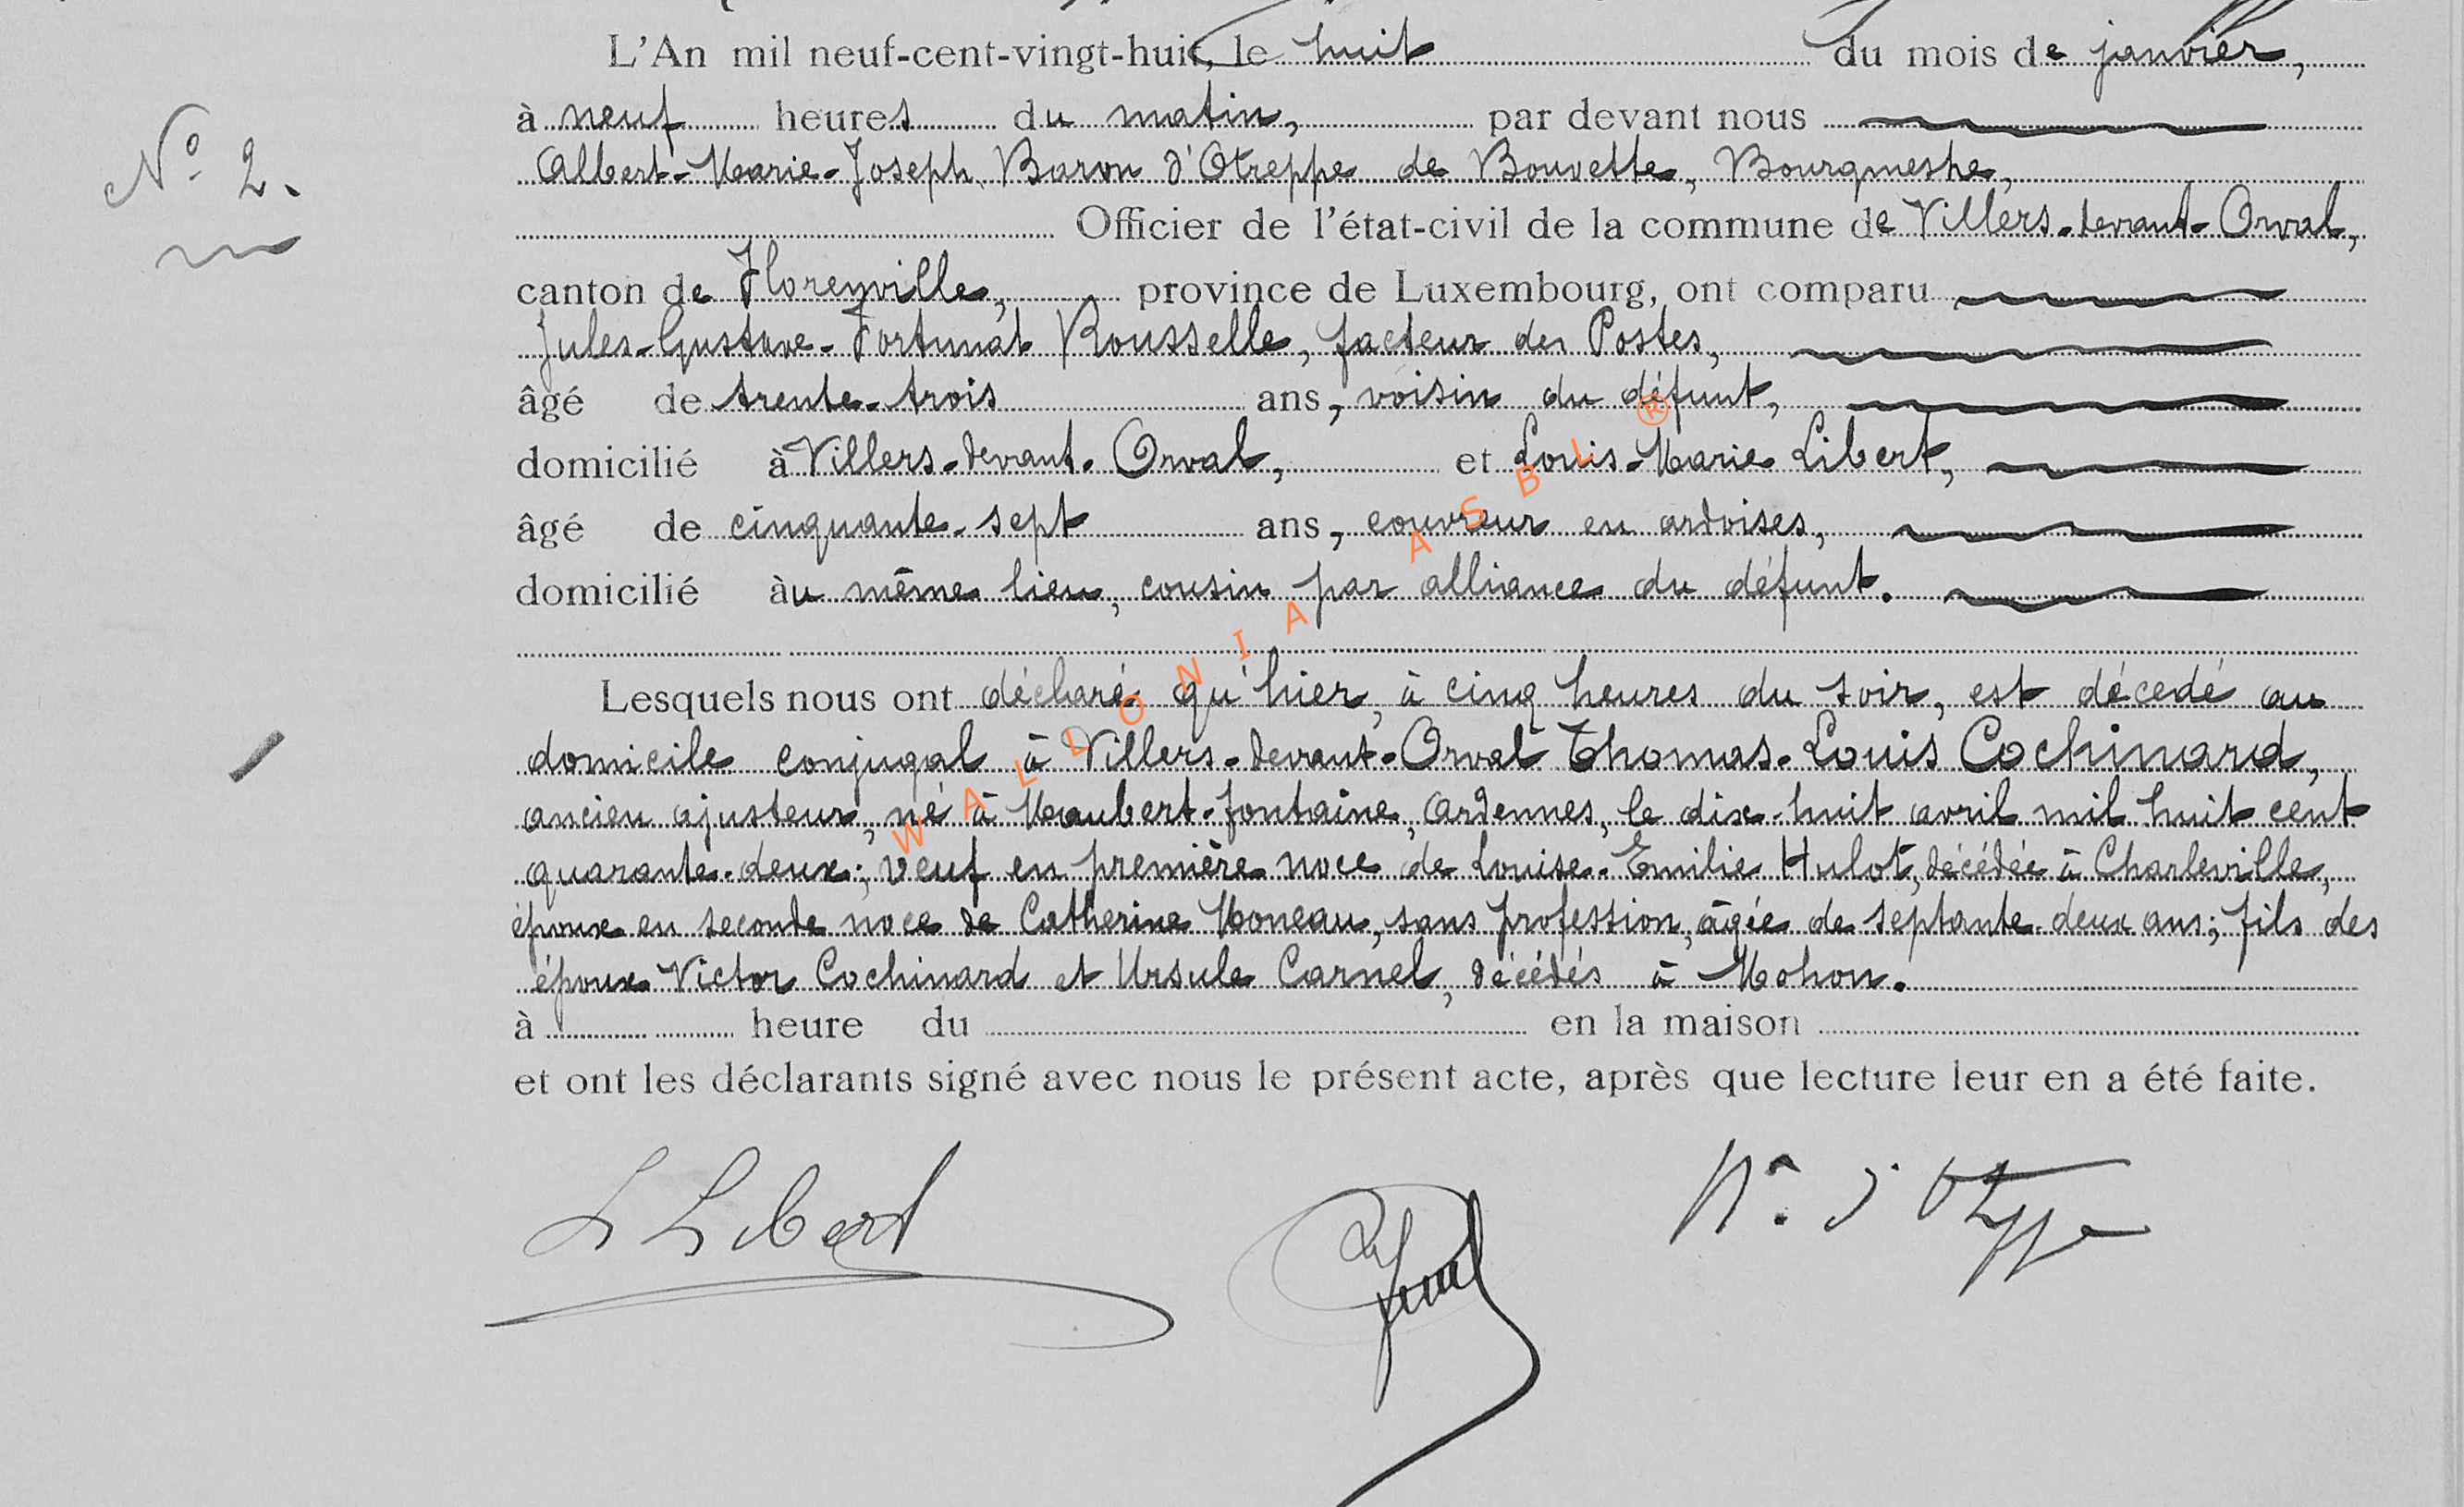 L'An mil neuf-cent-vingt-huit, le huit du mois de janvier,
à neuf heures du matin, par devant nous
N° 2.
Albert-Marie-Joseph, Baron d'Otreppe de Bouvette, Bourgmestre,
Officier de l'état-civil de la commune de Villers-devant-Orval,
canton de Florenville, province de Luxembourg, ont comparu
Jules-Gustave-Fortunat Rousselle, facteur des Postes,
âgé de trente-trois ans, voisin du défunt,
domicilié à Villers-devant-Orval, et Louis-Marie Libert,
âgé de cinquante-sept ans, couvreur en ardoises,
domicilié àu même lieu, cousin par alliance du défunt.
Lesquels nous ont déclaré qu'hier, à cinq heures du soir, est décedé au
domicile conjugal à Villers-devant-Orval Thomas-Louis Cochinard,
ancien ajusteur, né à Maubert-fontaine, Ardennes, le dix-huit avril mil huit cent
quarante-deux; veuf en première noce de Louise-Emilie Hulot, décédée à Charleville,
époux en seconde noce de Catherine Moneau, sans profession, âgée de septante-deux ans; fils des
époux Victor Cochinard et Ursule Carnel, décédés à Mohon.
à heure du en la maison
et ont les déclarants signé avec nous le présent acte, après que lecture leur en a été faite.
L Libert
d'Otreppe
WALLONIA ASBL ®